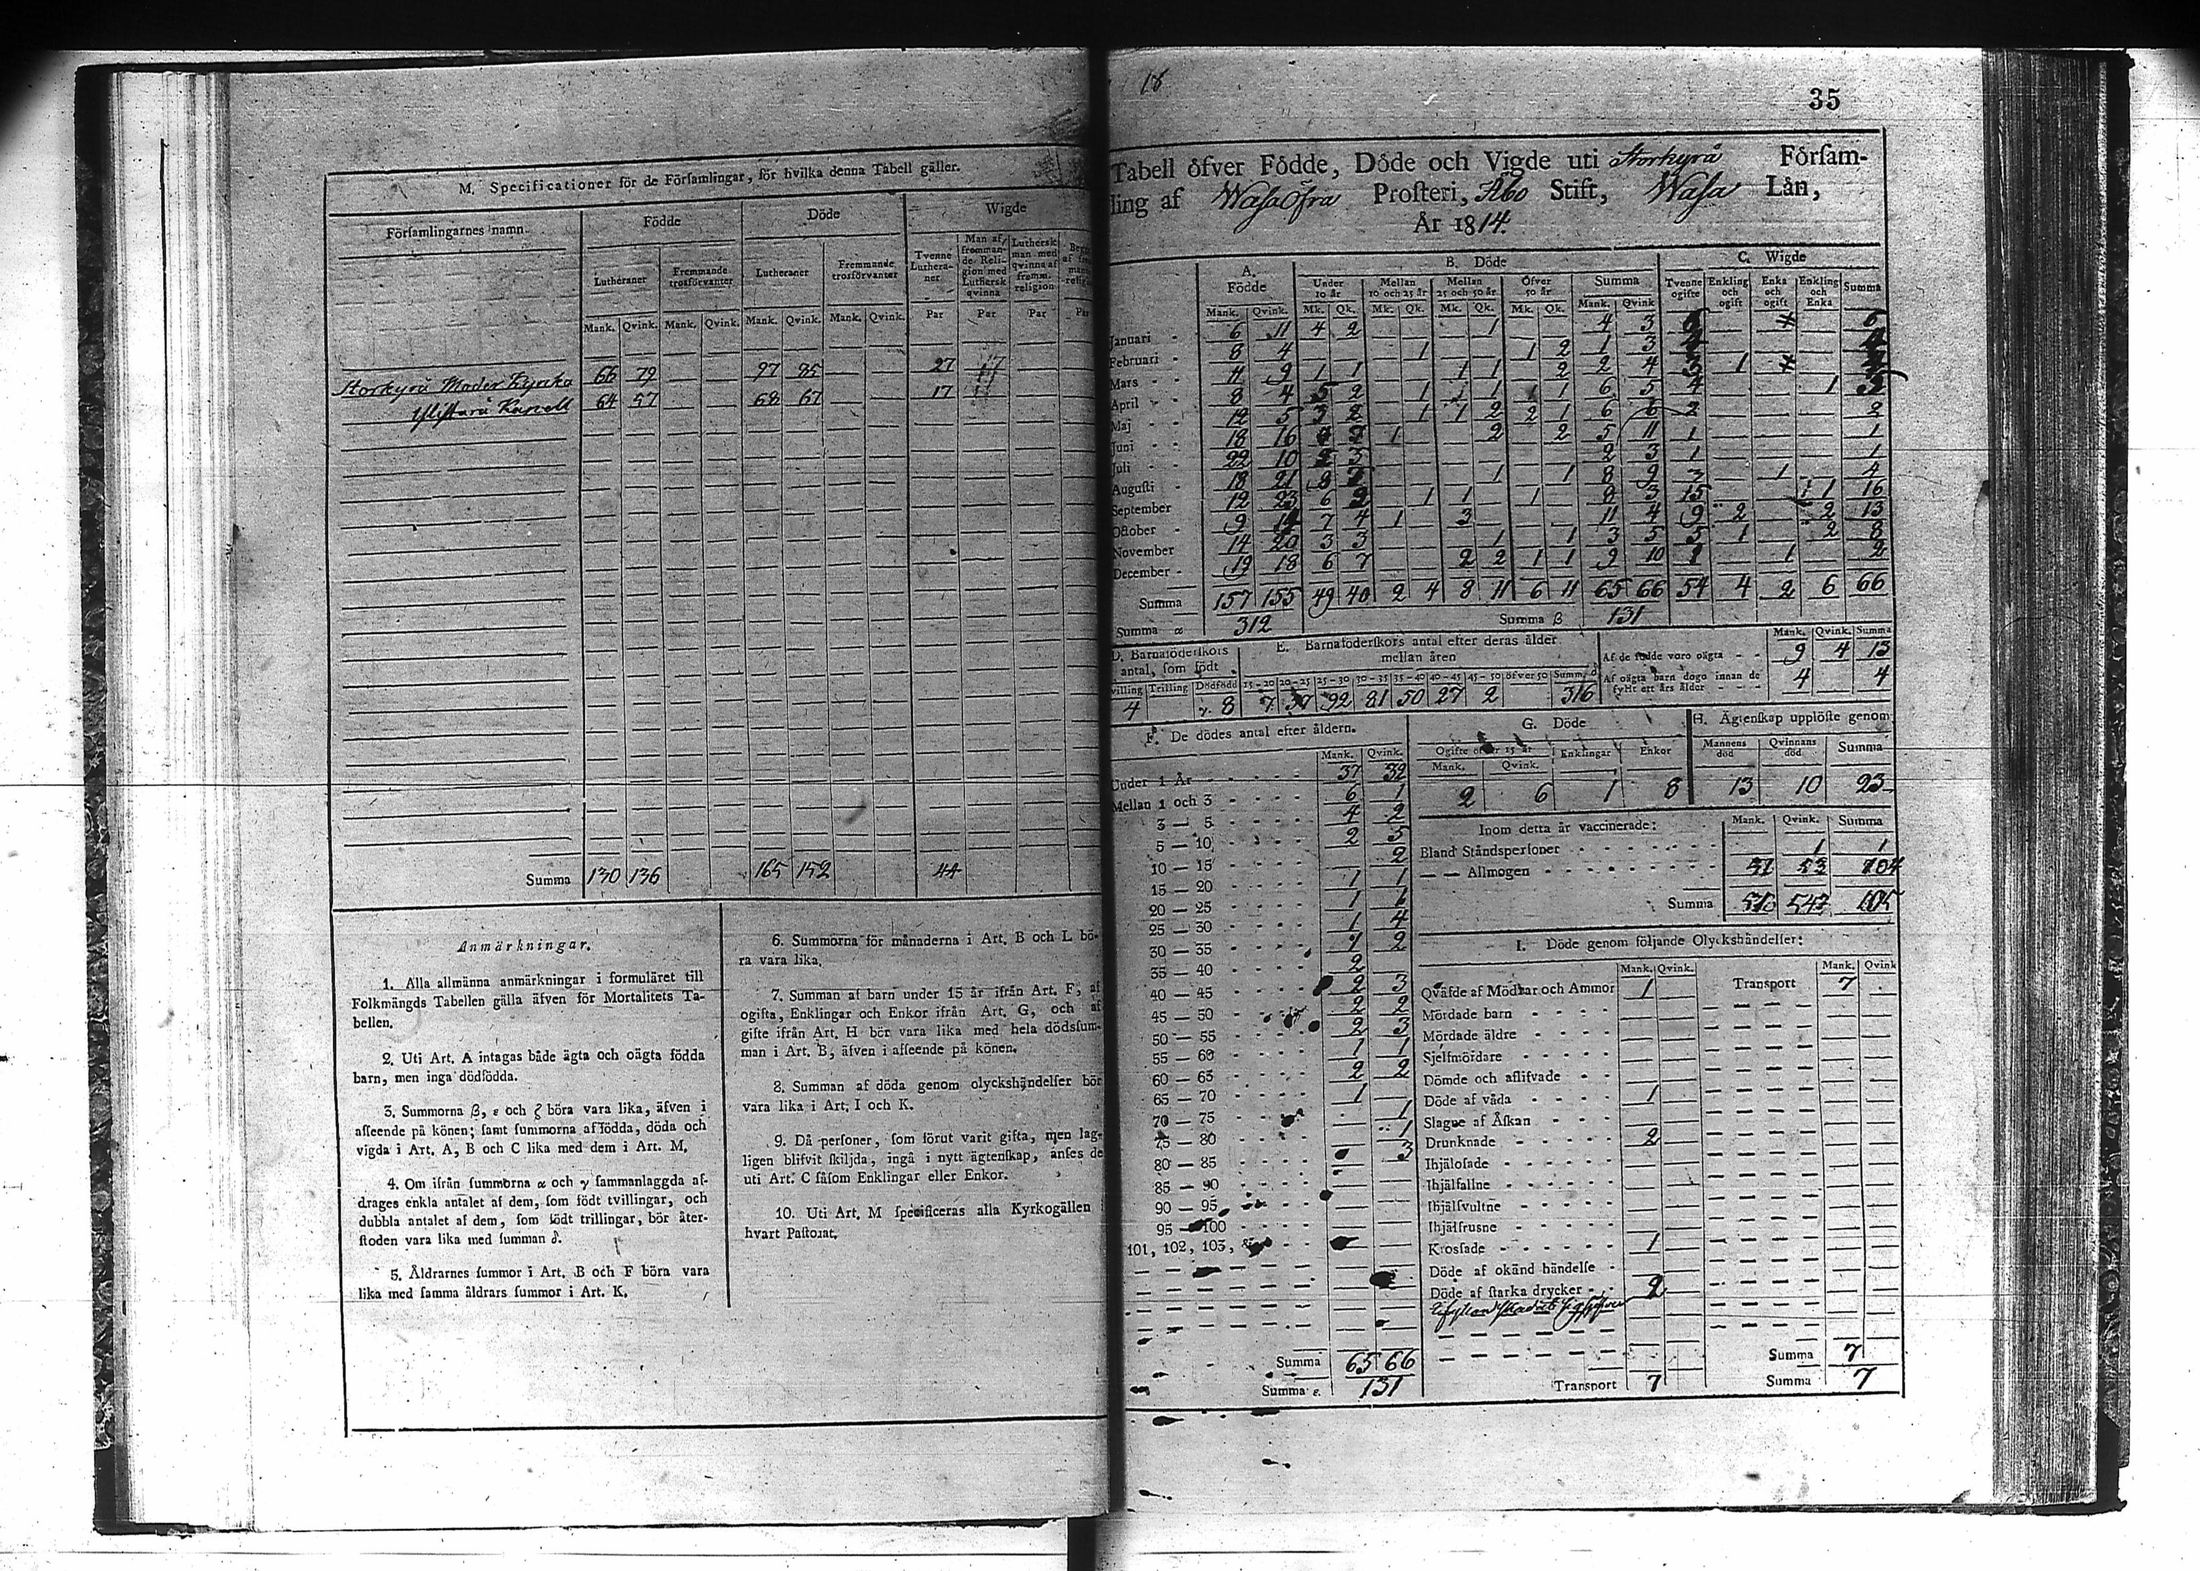 M. Specificationer för de Församlingar, för hvilka denna Tabell gäller.
Församlingarnes namn. Födde Döde Wigde
Lutheraner Fremmande trosförvanter Lutheraner Fremmande trosförvanter Tvenne Lutheraner Man af fremmande Religion med Luthersk qvinna Luthersk man med qvinna af fremm. religion
Mank. Qvink. Mank. Qvink. Mank. Qvink. Mank. Qvink. Par Par Par Par
Storkyrå Moder Kyrka 66 79 97 85 27 17
Ylistaro Kapell 64 57 68 67 17
Summa 130 136 165 152 44
Anmärkningar.
1. Alla allmänna anmärkningar i formuläret till
Folkmängds Tabellen gälla äfven för Mortalitets Ta-
bellen.
2. Uti Art. A intagas både ägta och oägta födda
barn, men inga dödfödda.
3. Summorna β, ε och ζ böra vara lika, äfven i
afseende på könen; samt summorna af födda, döda och
vigda i Art. A, B och C lika med dem i Art. M.
4. Om ifrån summorna α och γ sammanlagda af-
drages enkla antalet af dem, som födt tvillingar, och
dubbla antalet af dem, som födt trillingar, bör åter-
stoden vara lika med summan δ.
5. Åldrarnes summor i Art. B och F böra vara
lika med samma åldrars summor i Art. K.
6. Summorna för månaderna i Art. B och L bö-
ra vara lika.
7. Summan af barn under 15 år ifrån Art. F, af
ogifta, Enklingar och Enkor ifrån Art. G, och af
gifte ifrån Art. H bör vara lika med hela dödssum-
man i Art. B, äfven i afseende på könen.
8. Summan af döda genom olyckshändelser bör
vara lika i Art. I och K.
9. Då personer, som förut varit gifta, men lag-
ligen blifvit skiljda, ingå i nytt ägtenskap, anses de
uti Art. C såsom Enklingar eller Enkor.
10. Uti Art. M specificeras alla Kyrkogällen i
hvart Pastorat.
18
35
Tabell öfver Födde, Döde och Vigde uti Storkyrå Försam-
ling af Wasa Öfra Prosteri, Åbo Stift, Wasa Län,
År 1814.
A. Födde B. Döde C. Wigde
Under 10 år Mellan 10 och 25 år Mellan 25 och 50 år Öfver 50 år Summa Tvenne ogifte Enkling och ogift Enka och ogift Enkling och Enka Summa
Mank. Qvink. Mk. Qk. Mk. Qk. Mk. Qk. Mk. Qk. Mank. Qvink
Januari 6 11 4 2 1 4 3
Februari 8 4 1 1 2 1 3
Mars 11 9 1 1 1 1 2 2 4 5 1
April 8 4 5 2 1 1 1 1 6 5 4 1 5
Maj 12 5 3 2 1 1 2 2 1 6 6 2 2
Juni 18 16 1 2 2 5 11 1 1
Juli 22 10 2 3 2 3 1 1
Augusti 18 21 8 1 1 8 9 3 1 4
September 12 23 6 2 1 1 1 8 3 15 1 16
October 9 7 4 1 3 11 4 9 2 2 13
November 14 20 3 3 1 1 3 5 5 1 2 8
December 19 18 6 7 2 2 1 1 9 10 1 1 2
Summa 157 155 49 40 2 4 8 11 6 11 65 66 54 4 2 6 66
Summa α 312 Summa β 131
D. Barnaföderskors antal, som födt
Tvilling Trilling Dödfödd
4 γ. 8
E. Barnaföderskors antal efter deras ålder
mellan åren
15-20 20-25 25-30 30-35 35-40 40-45 45-50 öfver 50 Summa δ
7 57 92 81 50 27 2 316
Mank. Qvink. Summa
Af de födde voro oägta 9 4 13
Af oägta barn dogo innan de
fyllt ett års ålder 4 4
F. De dödes antal efter åldern.
Mank. Qvink.
Under 1 År 37 32
Mellan 1 och 3 6 1
3 — 5 4 2
5 — 10 2 5
10 — 15 2
15 — 20 1 1
20 — 25 1 1
25 — 30 1 4
30 — 35 1 2
35 — 40 2
40 — 45 2 3
45 — 50 2 2
50 — 55 2 3
55 — 60 1 1
60 — 65 2 2
65 — 70 1
70 — 75 1
75 — 80 1
80 — 85 3
85 — 90
90 — 95
95 — 100
101, 102, 103,
Summa 65 66
Summa ε. 131
G. Döde
Ogifte öfver 15 år Enklingar Enkor
Mank. Qvink.
2 6 1 8
H. Ägtenskap upplöste genom
Mannens död Qvinnans död Summa
13 10 23
Inom detta år vaccinerade: Mank. Qvink. Summa
Bland Ståndspersoner 1 1
— — Allmogen 51 53 104
Summa 105
I. Döde genom följande Olyckshändelser:
Mank. Qvink. Transport Mank. Qvink
Qväfde af Mödrar och Ammor 1 7
Mördade barn
Mördade äldre
Sjelfmördare
Dömde och aflifvade
Döde af våda 1
Slagne af Åskan
Drunknade 2
Ihjälosade
Ihjälfallne
Ihjälsvultne
Ihjälfrusne
Krossade 1
Döde af okänd händelse
Döde af starka drycker 2
Summa 7
Transport 7 Summa 7